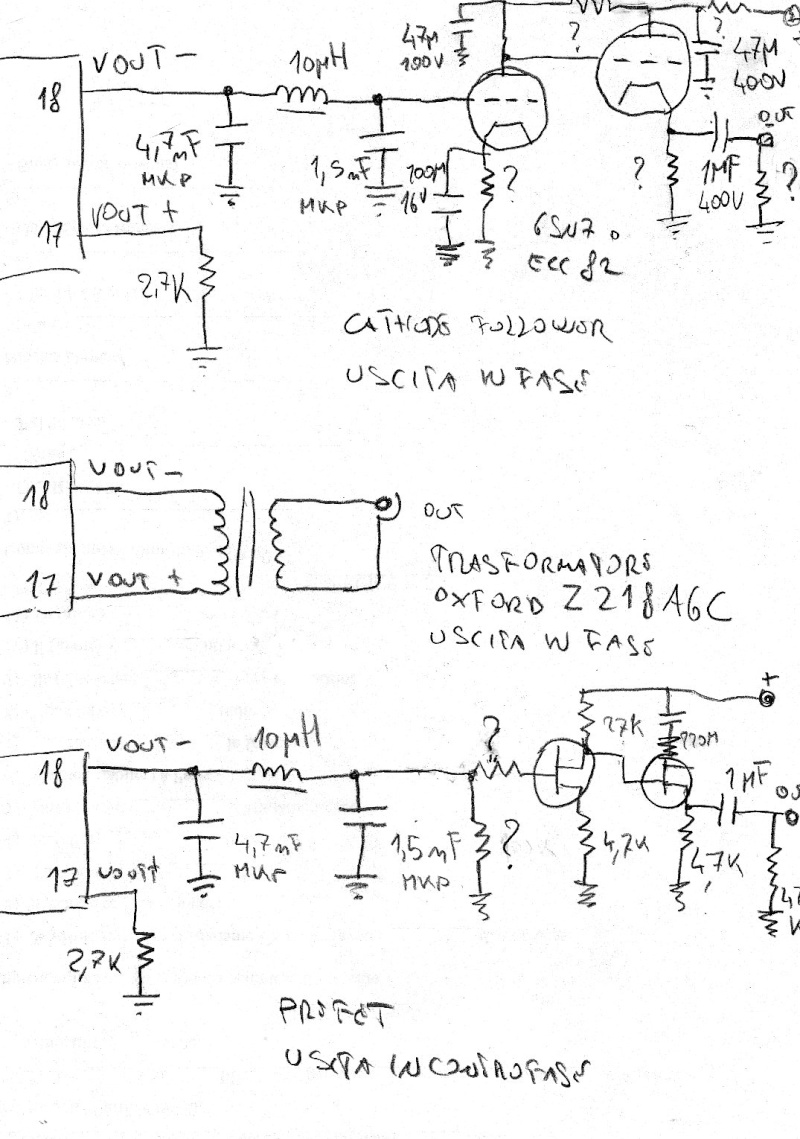 VOUT -
18
10µH
47µ
100V
?
?
47µ
400V
OUT
4,7nF
MKP
1,5nF
MKP
100µ
16V
?
?
1MF
400V
?
17
VOUT +
2,7K
6SN7 o
ECC 82
CATHODE FOLLOWOR
USCITA IN FASE
VOUT -
18
17
VOUT +
OUT
TRASFORMATORE
OXFORD Z218A6C
USCITA IN FASE
+
VOUT -
18
10µH
?
27K
220M
1MF
OU
4,7nF
MKP
1,5nF
MKP
?
4,7K
47K
47
K
17
VOUT+
2,7K
PREFET
USCITA IN CONTROFASE